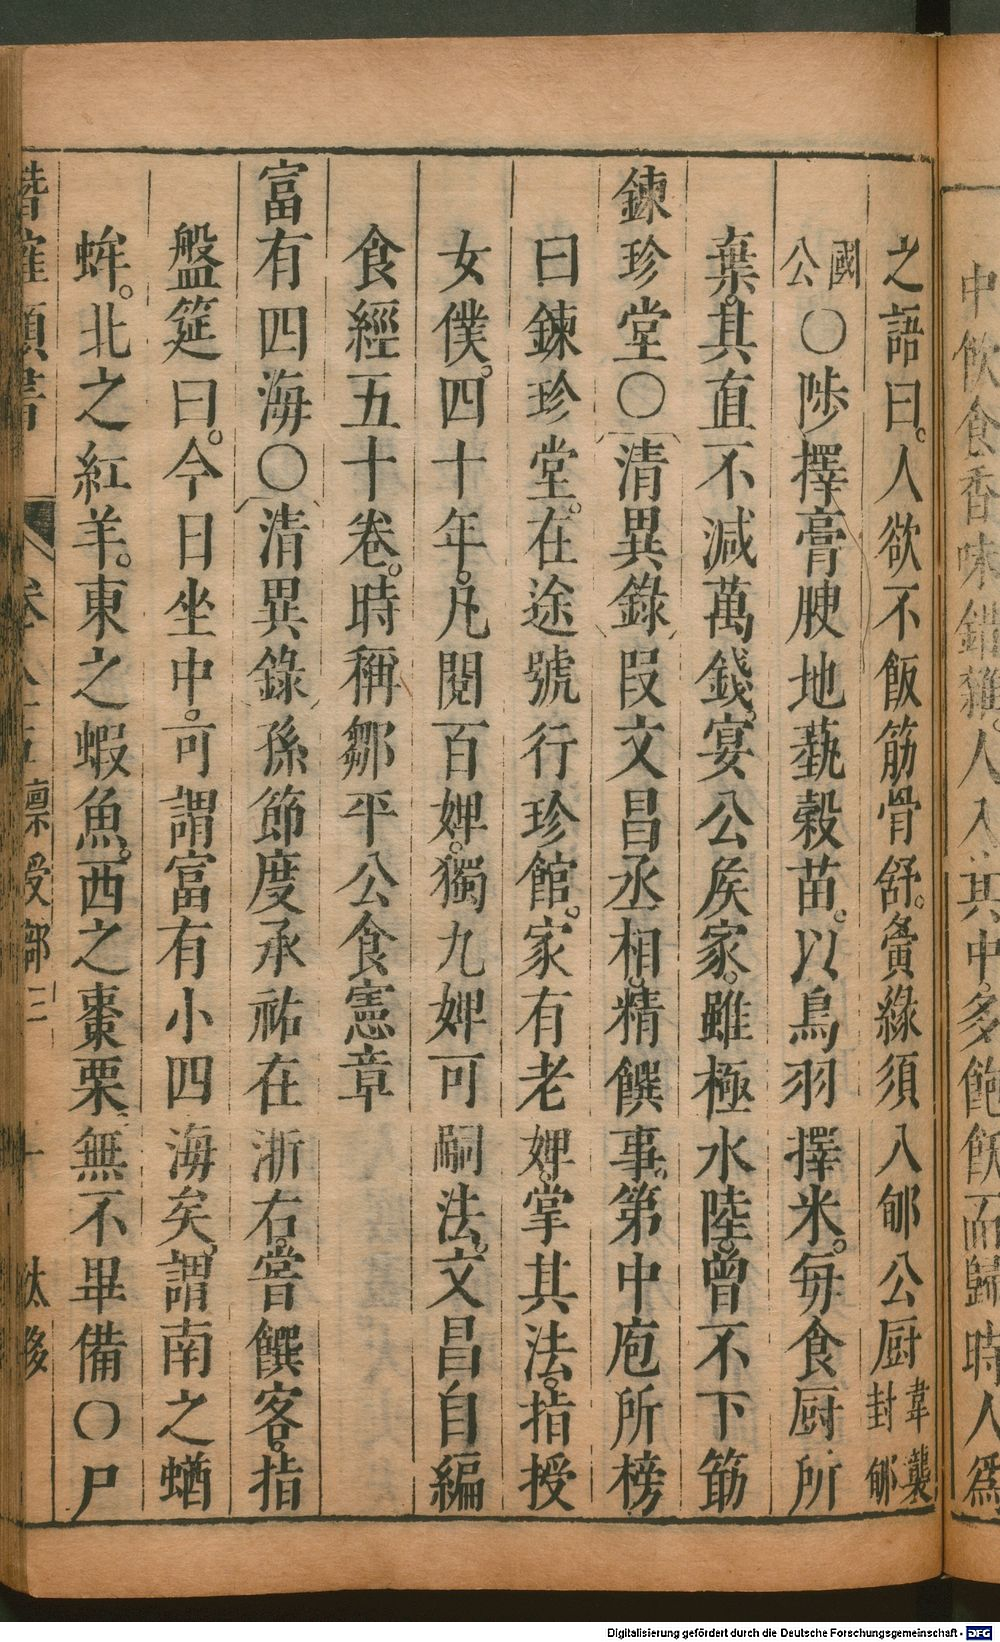 中飲食香味錯雜。人入其中。多飽飫而歸時人爲
之語曰。人欲不飯筋骨舒。夤緣須入郇公厨韋襲封郇
國公〇陟擇膏腴地蓺穀苗。以鳥羽擇米。每食厨所
棄。其直不減萬錢。宴公矦家。雖極水陸。曾不下筯
鍊珍堂〇清異錄段文昌丞相。精饌事。第中庖所榜
曰鍊珍堂。在途號行珍館。家有老婢。掌其法。指授
女僕。四十年。凡閱百婢。獨九婢可嗣法。文昌自編
食經五十卷。時稱鄒平公食憲章
富有四海〇清異錄孫節度承祐在浙右。嘗饌客。指
盤筵曰。今日坐中。可謂富有小四海矣。謂南之蝤
蛑。北之紅羊。東之蝦魚。西之棗栗。無不畢備〇尸
類書 卷 部三
Digitalisierung gefördert durch die Deutsche Forschungsgemeinschaft - DFG